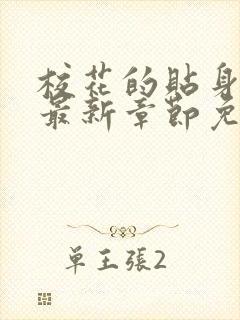 校花的貼身
最新章節免
单王張2